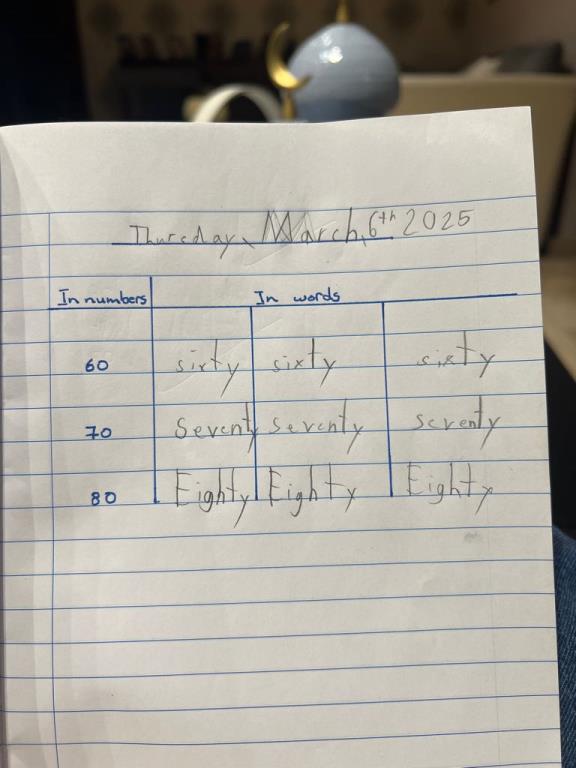 Thursday, March, 6th 2025
In numbers In words
60 sixty sixty sixty
70 Seventy seventy seventy
80 Eighty Eighty Eighty